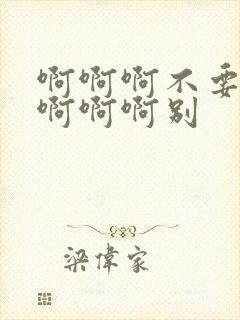 啊啊啊不要
啊啊啊别
梁偉家